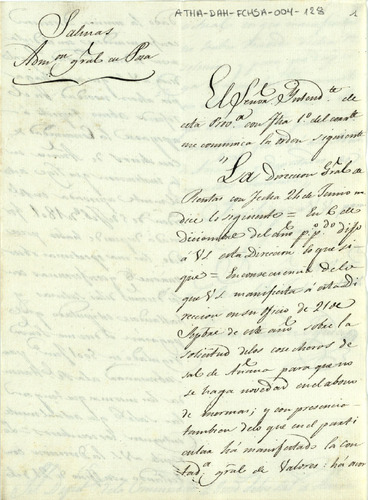 ATHA-DAH-FCHSA-004-128
1
Salinas
Admon gral de Poza
El Señor Intendte de
esta Prova con fha 1º del corrte
me comunica la orden siguiente
"La Direccion Gral de
Rentas con fecha 24 de Junio me
dice lo siguiente = En 6 de
diciembre del año p.º p.do dijo
á VS esta Direccion lo que si-
gue = En consecuencia de lo
que VS manifiesta á esta Di
reccion en su oficio de 21 de
Septbre de este año sobre la
solicitud de los cosecheros de
sal de Añana para que no
se haga novedad en el abono
de mermas; y con presencia
tambien de lo que en el parti
cular há manifestado la con
tadª gral de Valores: há acor